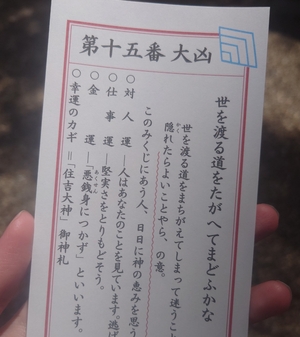 第十五番 大凶
世を渡る道をたがへてまどふかな
世を渡る道をまちがえてしまって迷うこと
隠れたらよいことやら、の意。
かく
このみくじにあう人、日日に神の恵みを思う
○対人運―人はあなたのことを見ています。逃げ
○仕事運―堅実さをとりもどそう。
○金運―「悪銭身につかず」といいます。
あくせん
○幸運のカギ＝「住吉大神」御神札